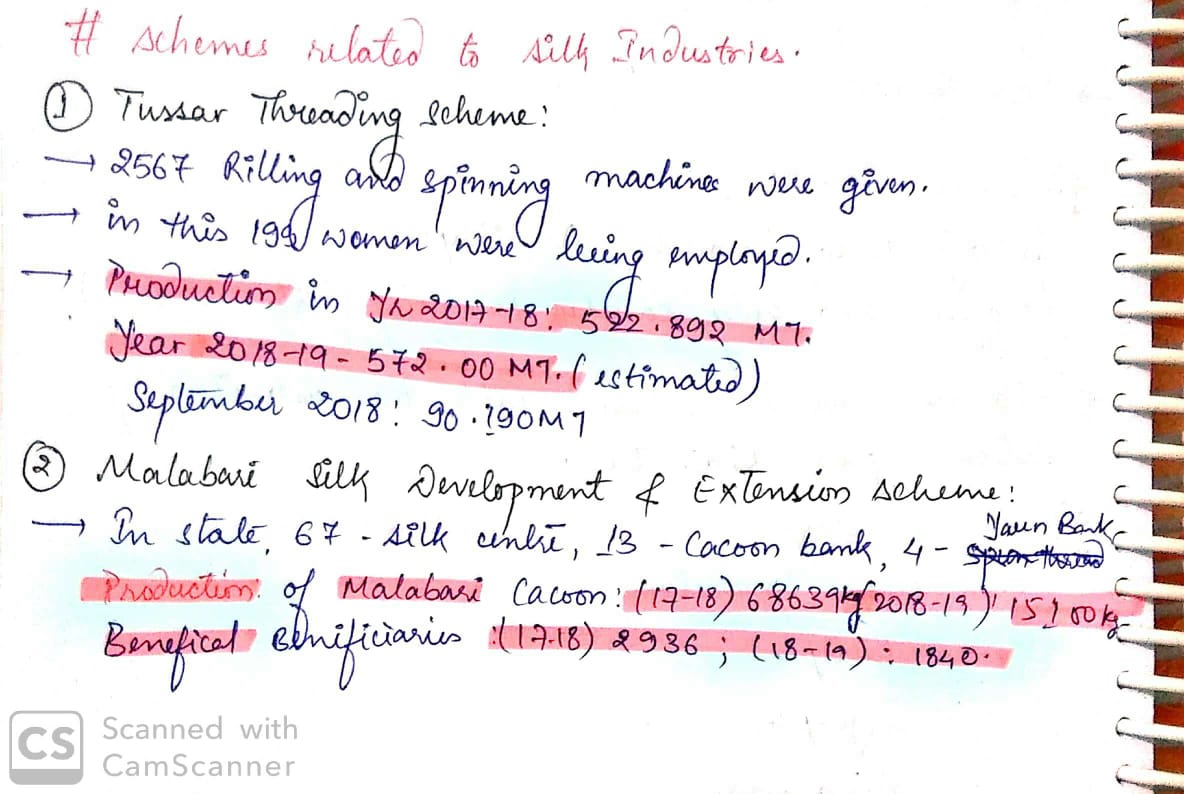 # schemes related to silk Industries.
① Tussar Threading scheme:
→ 2567 Rilling and spinning machines were given.
→ in this women were being employed.
→ Production in Yr 2017-18: 522.892 MT.
Year 2018-19 - 572.00 MT. (estimated)
September 2018: 90.190MT
② Malabari Silk Development & Extension scheme:
→ In state, 67 - silk centre, 13 - Cacoon bank, 4 - Yaun Bank
Production: of Malabari Cacoon: (17-18) 68639kg 2018-19) 15100kg
Benefical Benificiaries :(17-18) 2936 ; (18-19) : 1840.
CS Scanned with
CamScanner